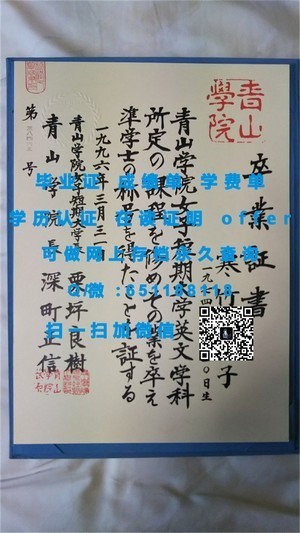 青山
學院
卒業証書
寒竹
子
一九
〇日生
青山学院女子短期大学英文学科
所定の課程を修めその業を卒え
準学士の称号を得たことを証する
一九九六年三月三一日
青山学院女子短期大学長 栗坪良樹
青山学院長 深町正信
第
号
毕业证 成绩单 学费单
学历认证 在读证明 offer
可做网上存档永久查询
Q/微:653188118
扫一扫加微信